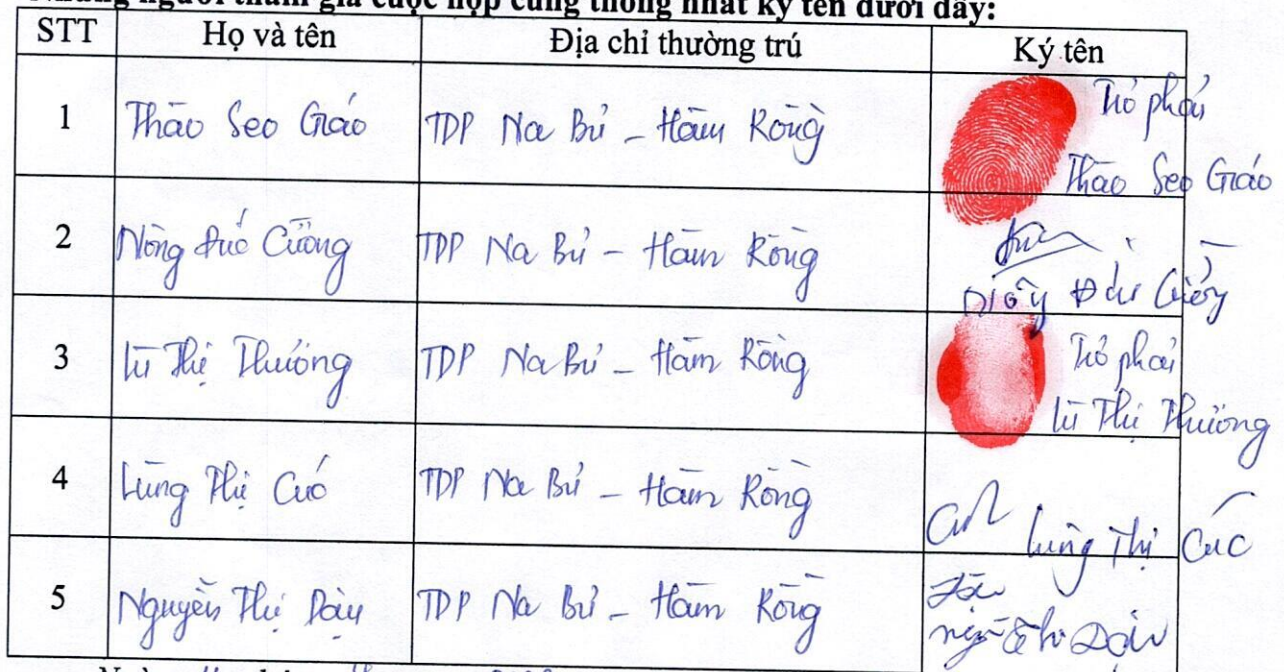 Những người tham gia cuộc họp cùng thống nhất ký tên dưới đây:
STT Họ và tên Địa chỉ thường trú Ký tên
1 Thào Seo Giáo TDP Na Bủ - Hàm Rồng Trỏ phải
Thào Seo Giáo
2 Nông Đức Cường TDP Na Bủ - Hàm Rồng
3 Lù Thị Thương TDP Na Bủ - Hàm Rồng Trỏ phải
Lù Thị Thương
4 Lùng Thị Cúc TDP Na Bủ - Hàm Rồng
Lùng Thị Cúc
5 Nguyễn Thị TDP Na Bủ - Hàm Rồng